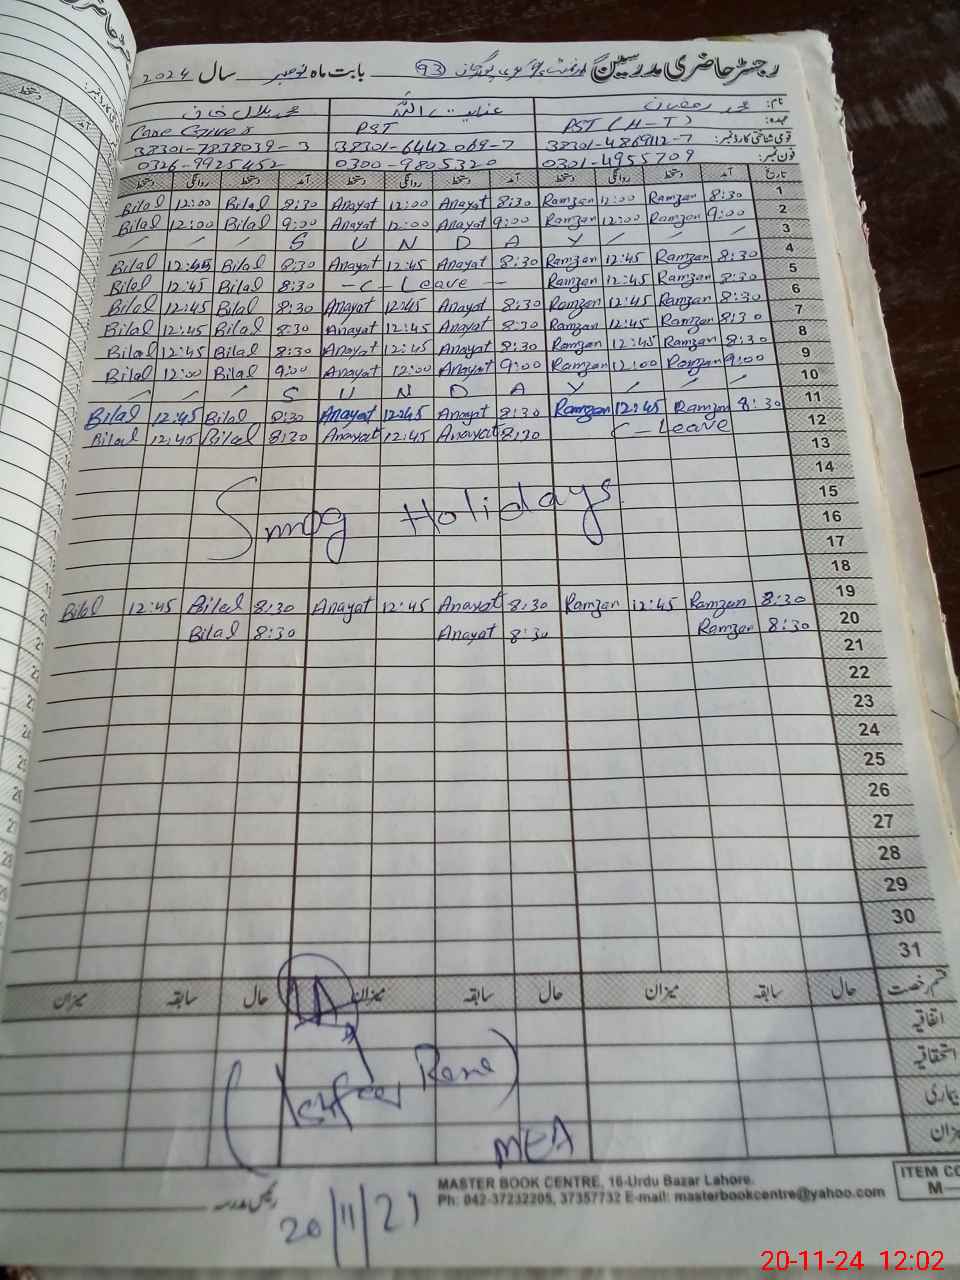 رجسٹر حاضری مدرسین 93 بابت ماہ نومبر سال 2024
نام: محمد رمضان عنایت اللہ محمد بلال خان
عہدہ: PST (H-T) PST Care Giver
قومی شناختی کارڈ نمبر: 38301-4869112-7 38301-6442069-7 38301-7878039-3
فون نمبر: 0301-4955709 0300-9805320 0326-9925452
تاریخ آمد دستخط روانگی دستخط آمد دستخط روانگی دستخط آمد دستخط روانگی دستخط
Bilal 12:00 Bilal 8:30 Anayat 12:00 Anayat 8:30 Ramzan 12:00 Ramzan 8:30 1
Bilal 12:00 Bilal 9:00 Anayat 12:00 Anayat 9:00 Ramzan 12:00 Ramzan 9:00 2
S U N D A Y 3
Bilal 12:45 Bilal 8:30 Anayat 12:45 Anayat 8:30 Ramzan 12:45 Ramzan 8:30 4
Bilal 12:45 Bilal 8:30 -C- Leave - Ramzan 12:45 Ramzan 8:30 5
Bilal 12:45 Bilal 8:30 Anayat 12:45 Anayat 8:30 Ramzan 12:45 Ramzan 8:30 6
Bilal 12:45 Bilal 8:30 Anayat 12:45 Anayat 8:30 Ramzan 12:45 Ramzan 8:30 7
Bilal 12:45 Bilal 8:30 Anayat 12:45 Anayat 8:30 Ramzan 12:45 Ramzan 8:30 8
Bilal 12:00 Bilal 9:00 Anayat 12:00 Anayat 9:00 Ramzan 12:00 Ramzan 9:00 9
S U N D A Y 10
Bilal 12:45 Bilal 8:30 Anayat 12:45 Anayat 8:30 Ramzan 12:45 Ramzan 8:30 11
Bilal 12:45 Bilal 8:30 Anayat 12:45 Anayat 8:30 C-Leave 12
13
14
Smog Holidays 15
16
17
18
Bilal 12:45 Bilal 8:30 Anayat 12:45 Anayat 8:30 Ramzan 12:45 Ramzan 8:30 19
Bilal 8:30 Anayat 8:30 Ramzan 8:30 20
21
22
23
24
25
26
27
28
29
30
31
قسم رخصت حال سابقہ میزان حال سابقہ میزان حال سابقہ میزان
اتفاقیہ
استحقاقیہ
بیماری
میزان
MEA
رئیس مدرسہ
MASTER BOOK CENTRE, 16-Urdu Bazar Lahore.
Ph: 042-37232205, 37357732 E-mail: masterbookcentre@yahoo.com
ITEM CO
M-
20/11/21
20-11-24 12:02